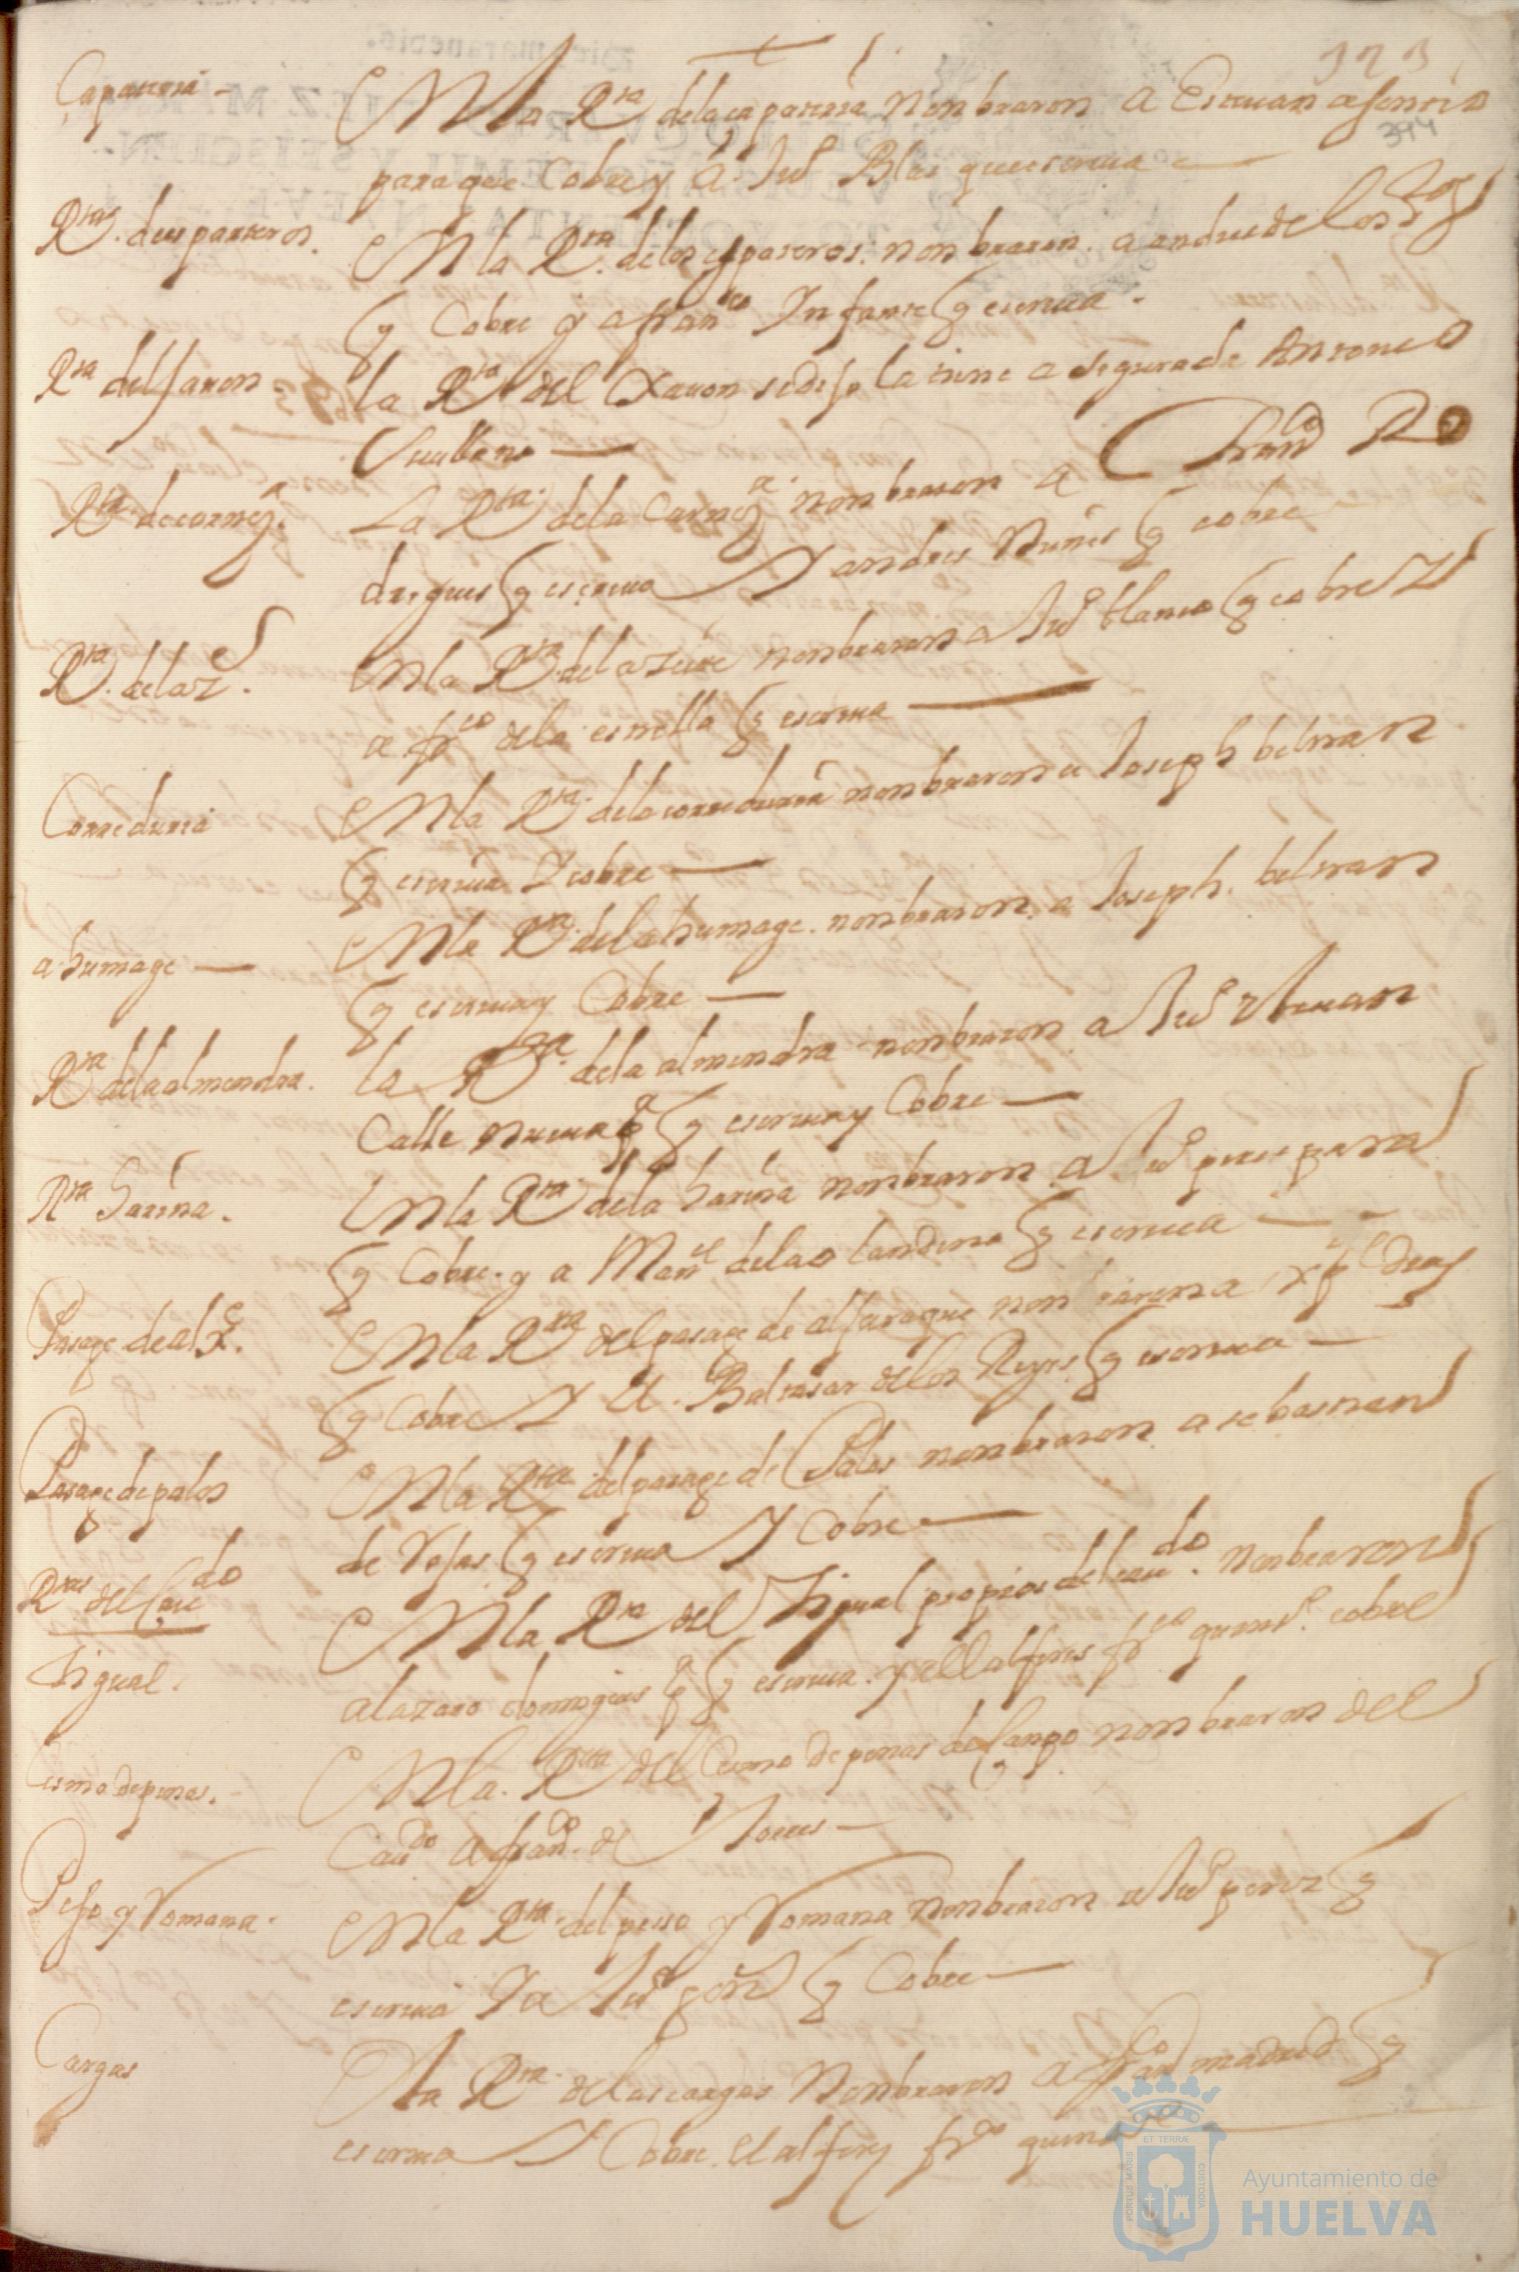 323
394
Capatería
En la Rta de la capatería nonbraron a Esteuan asencio
para que Cobre y a Juo Blas que escriua
Rtas de esparteros.
En la Rta de los espateros nonbraron a andres de los Rs
q Cobre y a franco Infante q escriua
Rta del Jauon
la Rta del Xauon se dijo la tiene asegurada Antonio
Rta de carnes.
La Rta de la Carne nonbraron a frando Ro
drigues q escriua Y andres Nunes q cobre
Rta del azte.
En la Rta del azeite nonbraron a Juo blanco q cobre Y
a fco de la estrella q escriua
Correduria
En la Rta de la correduria nonbraron a Joseph beltran
q escriua Y cobre
ahumage
En la Rta del ahumage nonbraron a Joseph beltran
q escriua y Cobre
Rta de la almendra.
la Rta de la almendra nonbraron a Juo
Calle nueua pa q escriua y Cobre
Rta harina.
En la Rta de la harina nonbraron a Juo peres
q Cobre y a Manl de la o q escriua
Pasage de alje.
En la Rta del pasage de aljaraque nonbraron a Xpl dias
q Cobre Y a Baltasar de los Reyes q escriua
Pasage de palos
En la Rta del pasage de Palos nonbraron a sebastian
de Rojas q escriua Y Cobre
Rtas del Caudo
higueral.
En la Rta del higueral propios del caudo nonbraron
a lazaro domigues pa q escriua y al alferes fco quinto cobre
esmo de penas.
En la Rta del de penas del Canpo nonbraron del
Caudo a frando de Torres
Peso y Romana.
En la Rta del peso y Romana nonbraron a Juo perez q
escriua Y a Juo gon q Cobre
Cargas
En la Rta de las cargas Nonbraron a franco madrid q
escriua Y Cobre el alferes fco quinto
PORTUS MARIS ET TERRAE CUSTODIA
Ayuntamiento de
HUELVA